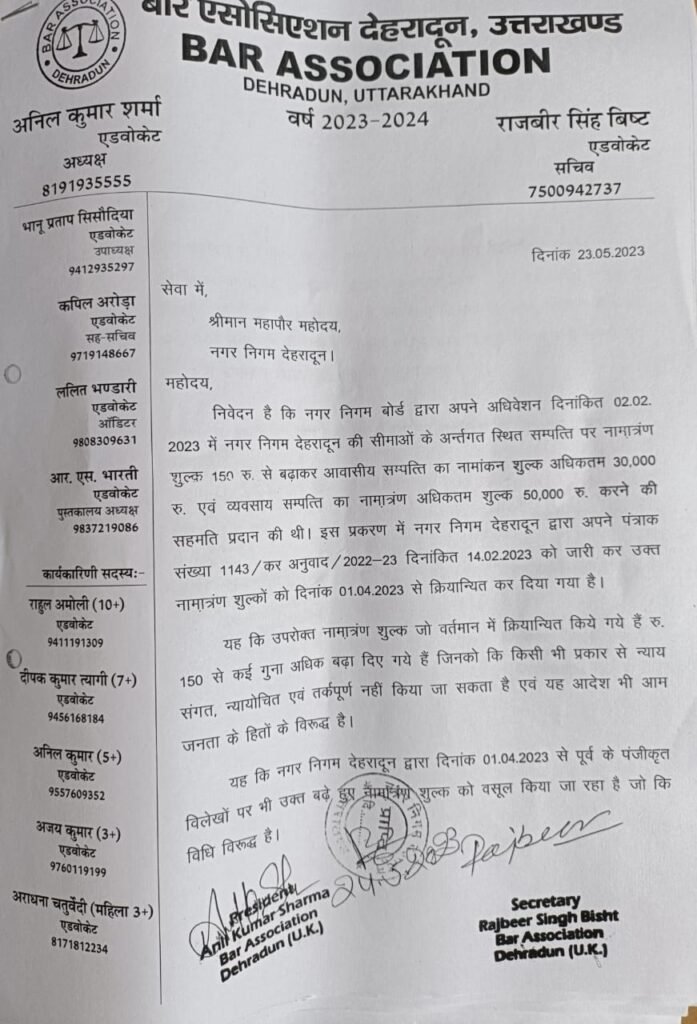 BAR ASSOCIATION
DEHRADUN
बार एसोसिएशन देहरादून, उत्तराखण्ड
BAR ASSOCIATION
DEHRADUN, UTTARAKHAND
वर्ष 2023-2024
अनिल कुमार शर्मा
एडवोकेट
अध्यक्ष
8191935555
राजबीर सिंह बिष्ट
एडवोकेट
सचिव
7500942737
भानू प्रताप सिसौदिया
एडवोकेट
उपाध्यक्ष
9412935297
कपिल अरोड़ा
एडवोकेट
सह-सचिव
9719148667
ललित भण्डारी
एडवोकेट
ऑडिटर
9808309631
आर. एस. भारती
एडवोकेट
पुस्तकालय अध्यक्ष
9837219086
कार्यकारिणी सदस्यः-
राहुल अमोली (10+)
एडवोकेट
9411191309
दीपक कुमार त्यागी (7+)
एडवोकेट
9456168184
अनिल कुमार (5+)
एडवोकेट
9557609352
अजय कुमार (3+)
एडवोकेट
9760119199
अराधना चतुर्वेदी (महिला 3+)
एडवोकेट
8171812234
दिनांक 23.05.2023
सेवा में,
श्रीमान महापौर महोदय,
नगर निगम देहरादून।
महोदय,
निवेदन है कि नगर निगम बोर्ड द्वारा अपने अधिवेशन दिनांकित 02.02.
2023 में नगर निगम देहरादून की सीमाओं के अर्न्तगत स्थित सम्पत्ति पर नामा्त्रंण
शुल्क 150 रु. से बढ़ाकर आवासीय सम्पत्ति का नामांकन शुल्क अधिकतम 30,000
रु. एवं व्यवसाय सम्पत्ति का नामा्त्रंण अधिकतम शुल्क 50,000 रु. करने की
सहमति प्रदान की थी। इस प्रकरण में नगर निगम देहरादून द्वारा अपने पंत्राक
संख्या 1143/कर अनुवाद/2022-23 दिनांकित 14.02.2023 को जारी कर उक्त
नामा्त्रंण शुल्कों को दिनांक 01.04.2023 से क्रियान्वित कर दिया गया है।
यह कि उपरोक्त नामा्त्रंण शुल्क जो वर्तमान में क्रियान्वित किये गये हैं रु.
150 से कई गुना अधिक बढ़ा दिए गये हैं जिनको कि किसी भी प्रकार से न्याय
संगत, न्यायोचित एवं तर्कपूर्ण नहीं किया जा सकता है एवं यह आदेश भी आम
जनता के हितों के विरूद्ध है।
यह कि नगर निगम देहरादून द्वारा दिनांक 01.04.2023 से पूर्व के पंजीकृत
विलेखों पर भी उक्त बढ़े हुए नामा्त्रंण शुल्क को वसूल किया जा रहा है जो कि
विधि विरूद्ध है।
Rajbeer
President
Anil Kumar Sharma
Bar Association
Dehradun (U.K.)
Secretary
Rajbeer Singh Bisht
Bar Association
Dehradun (U.K.)